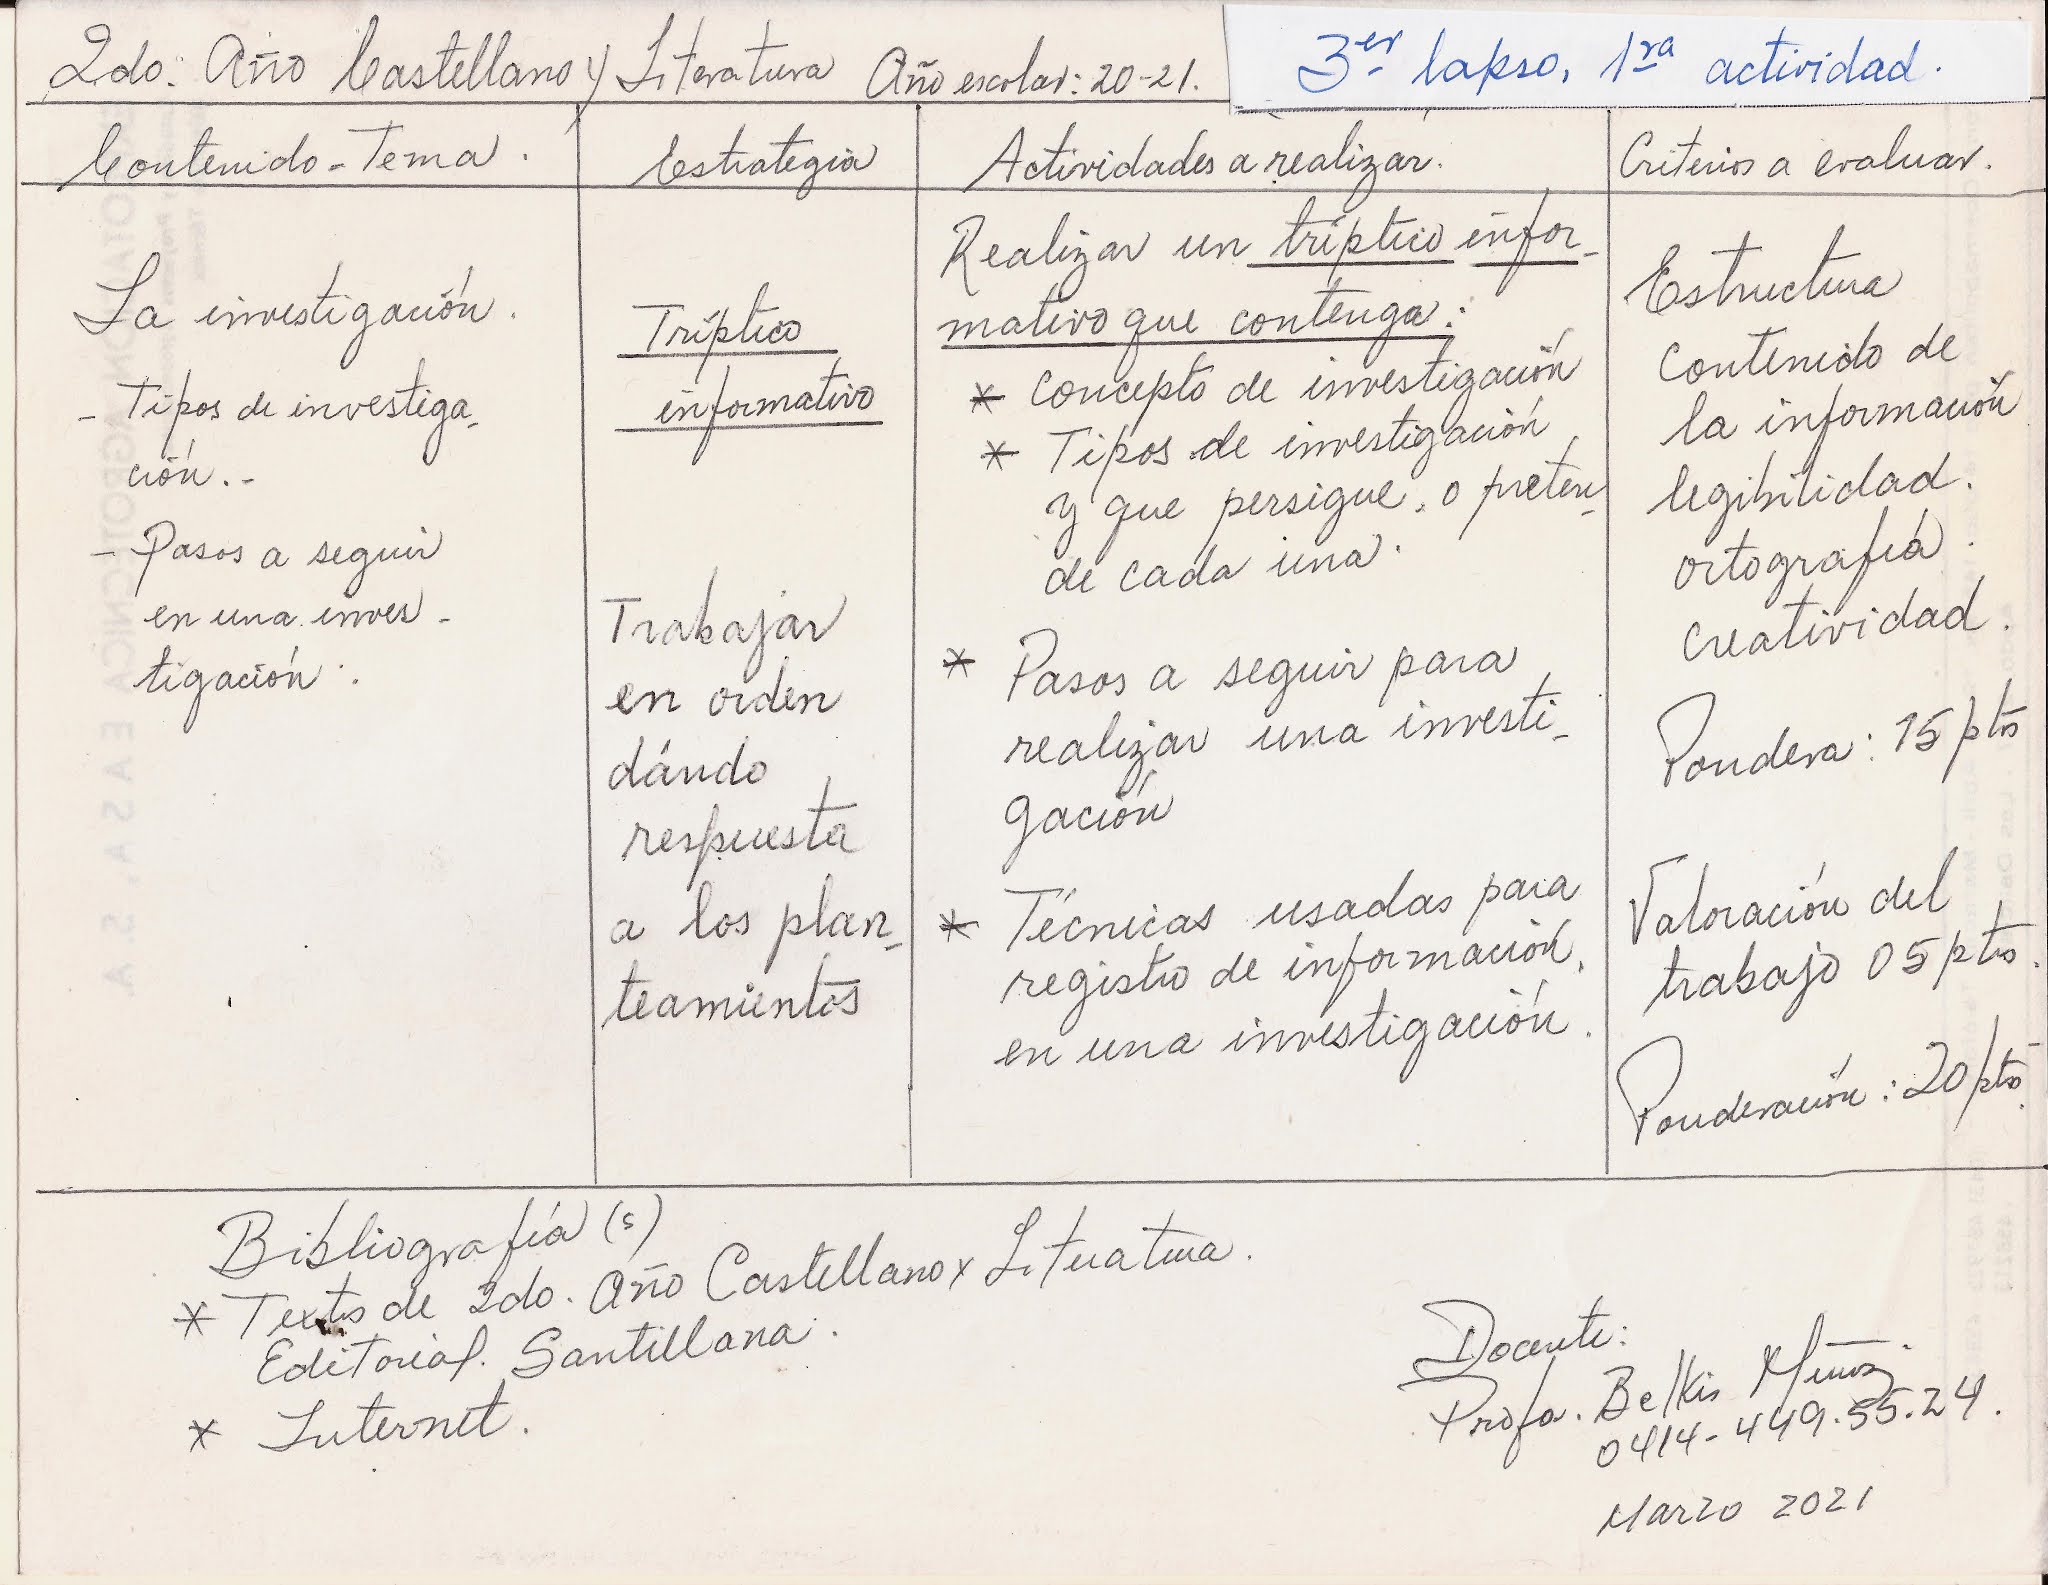 2do. Año Castellano y Literatura Año escolar: 20-21.
3er lapso, 1ra actividad.
Contenido-Tema.
La investigación.
- Tipos de investiga-
ción.-
- Pasos a seguir
en una inves-
tigación.
Estrategia
Tríptico
informativo
Trabajar
en orden
dándo
respuesta
a los plan-
teamientos
Actividades a realizar.
Realizar un tríptico infor-
mativo que contenga:
* Concepto de investigación
* Tipos de investigación
y que persigue, o preten-
de cada una.
* Pasos a seguir para
realizar una investi-
gación
* Técnicas usadas para
registro de información,
en una investigación.
Criterios a evaluar.
Estructura
Contenido de
la información
legibilidad.
ortografía.
Creatividad.
Pondera: 15 ptos
Valoración del
trabajo 05 ptos.
Ponderación: 20 ptos.
Bibliografía(s)
* Texto de 2do. Año Castellano y Literatura.
Editorial. Santillana.
* Internet.
Docente:
Profa. Belkis Muñoz.
0414-449.55.24.
Marzo 2021